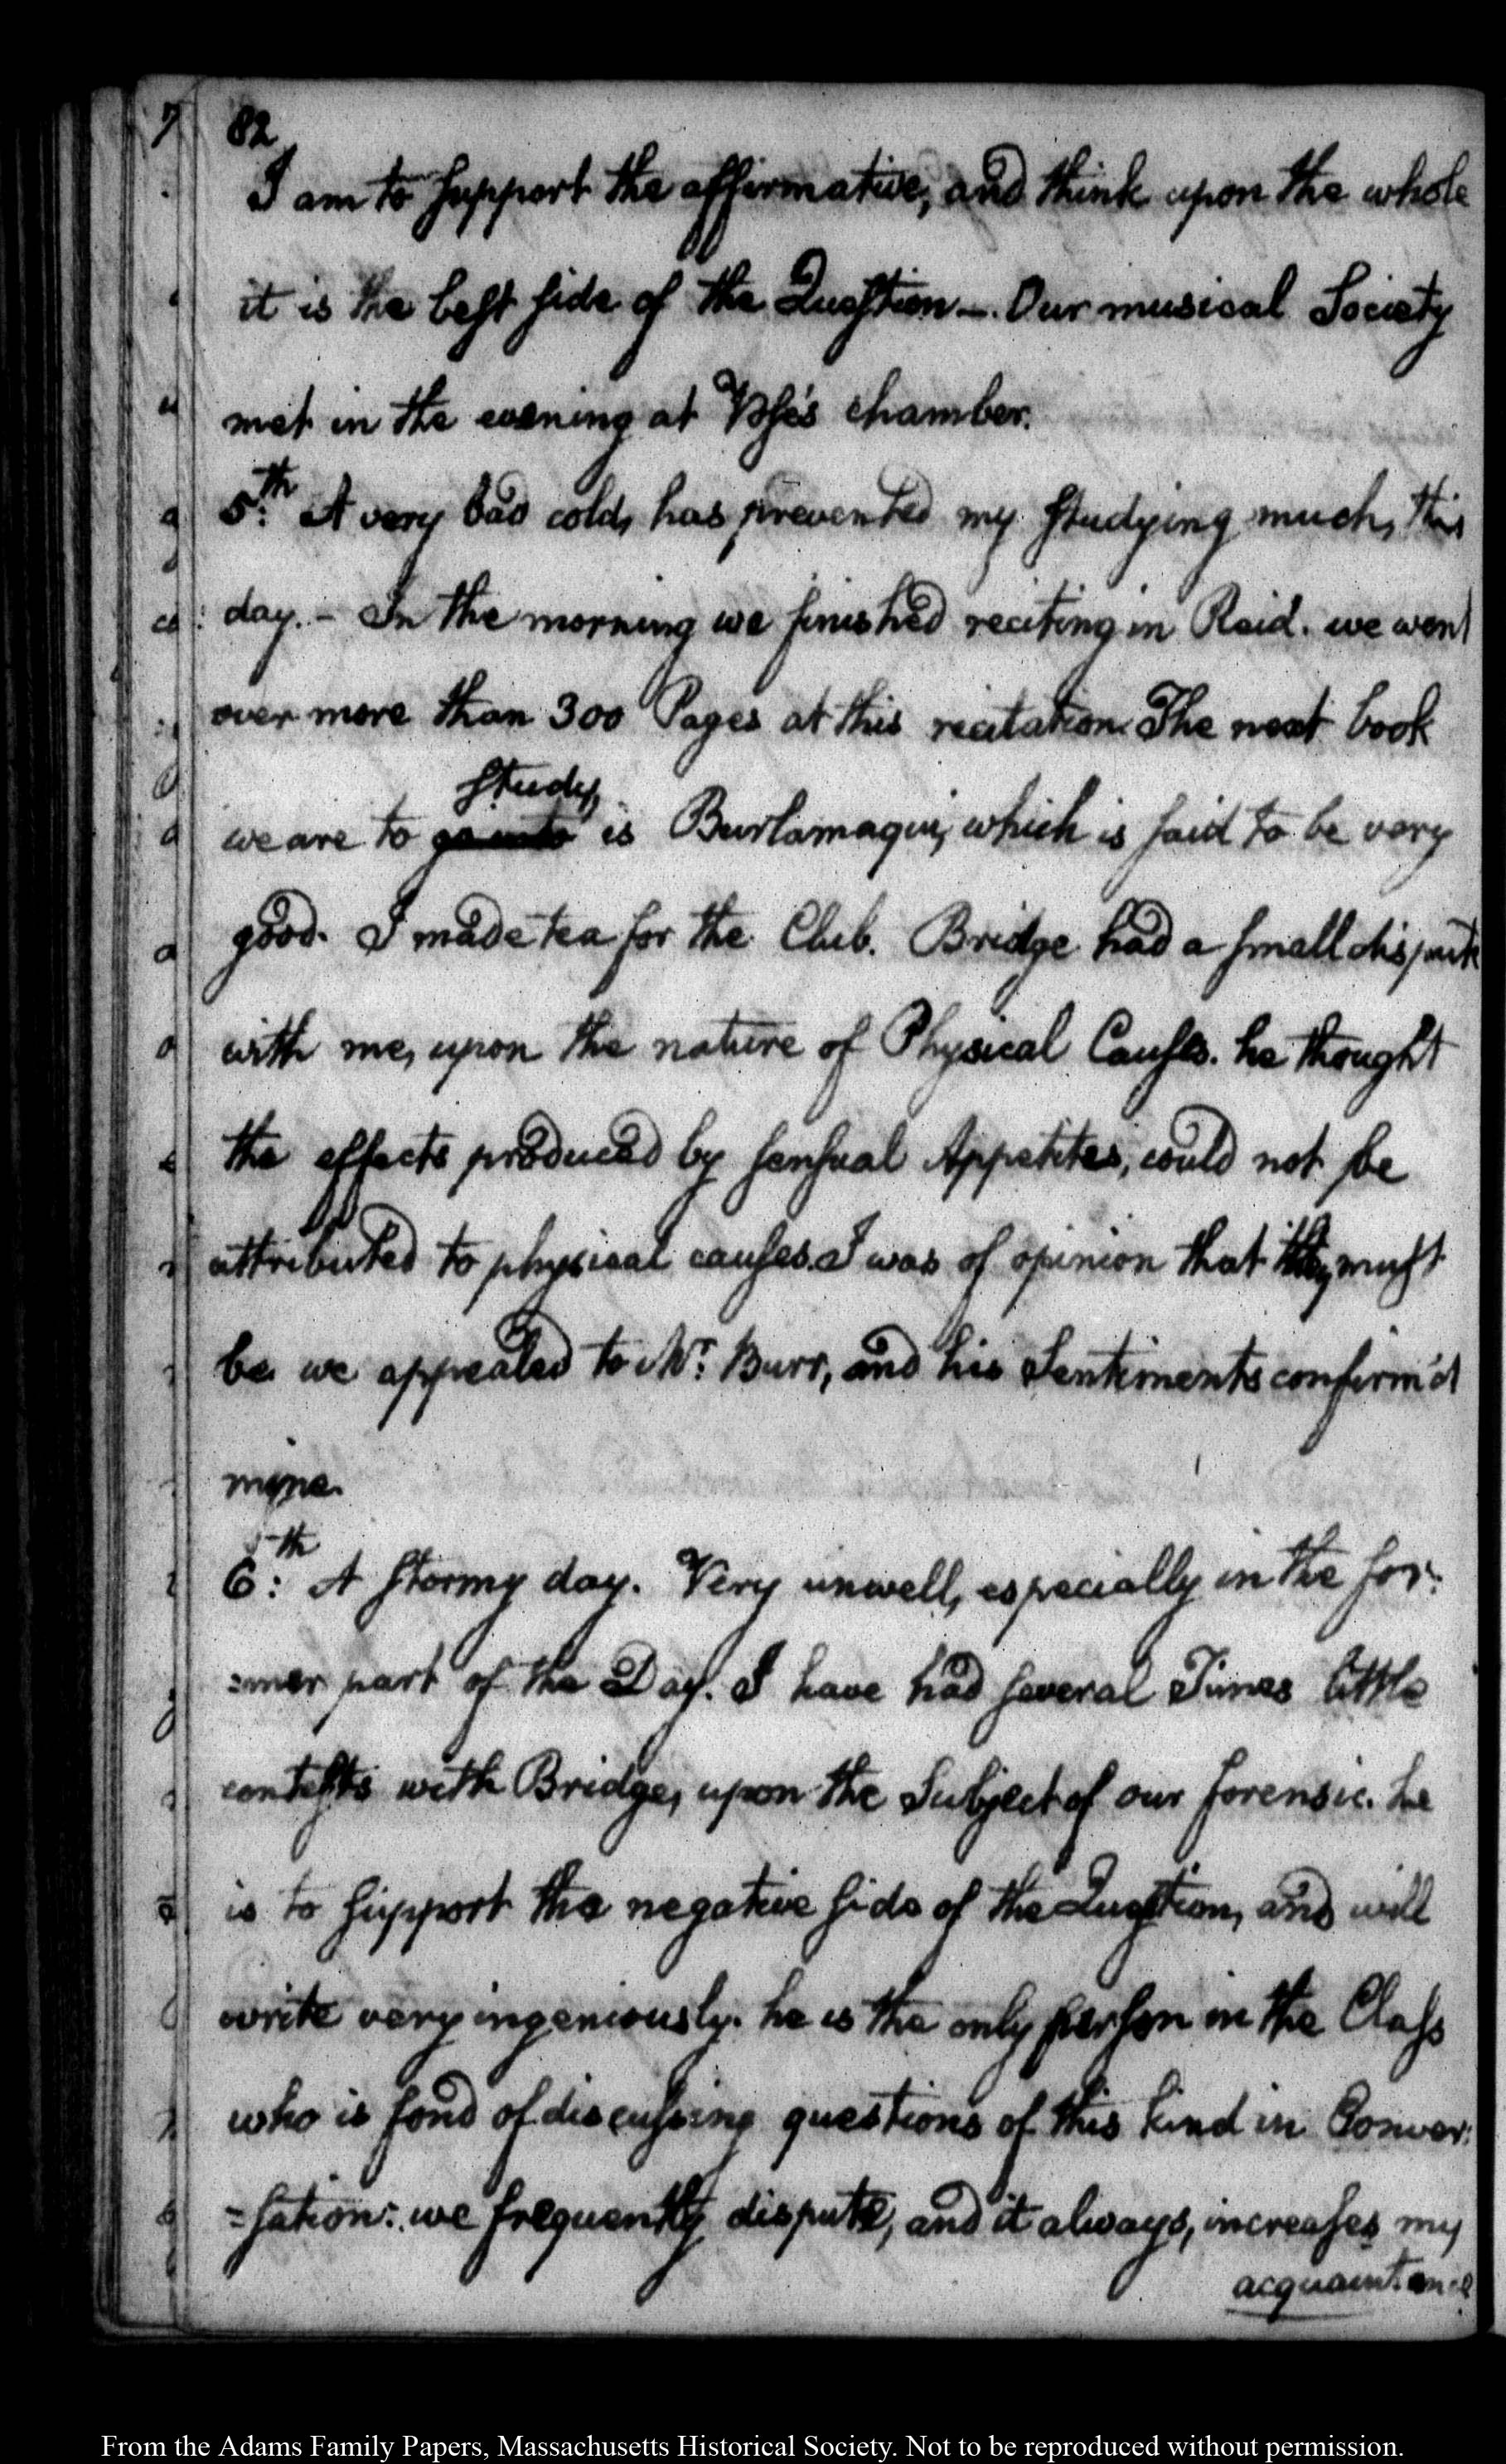 82
I am to support the affirmative, and think upon the whole
it is the best side of the Question —. Our musical Society
met in the evening at Vose's chamber.
5:th A very bad cold, has prevented my studying much, this
day. – In the morning we finished reciting in Reid. we went
over more than 300 Pages at this recitation. The next book
study,
we are to go into is Burlamaqui, which is said to be very
good. I made tea for the Club. Bridge had a small dispute
with me, upon the nature of Physical Causes. he thought
the effects produced by sensual Appetites, could not be
attributed to physical causes. I was of opinion that they must
be we appealed to Mr: Burr, and his Sentiments confirm'd
mine.
6:th A stormy day. Very unwell, especially in the for:
:mer part of the Day. I have had several Times little
contests with Bridge, upon the Subject of our forensic. he
is to support the negative side of the Question, and will
write very ingeniously. he is the only person in the Class
who is fond of discussing questions of this kind in Conver:
=sation: we frequently dispute, and it always, increases my
acquaintance
From the Adams Family Papers, Massachusetts Historical Society. Not to be reproduced without permission.